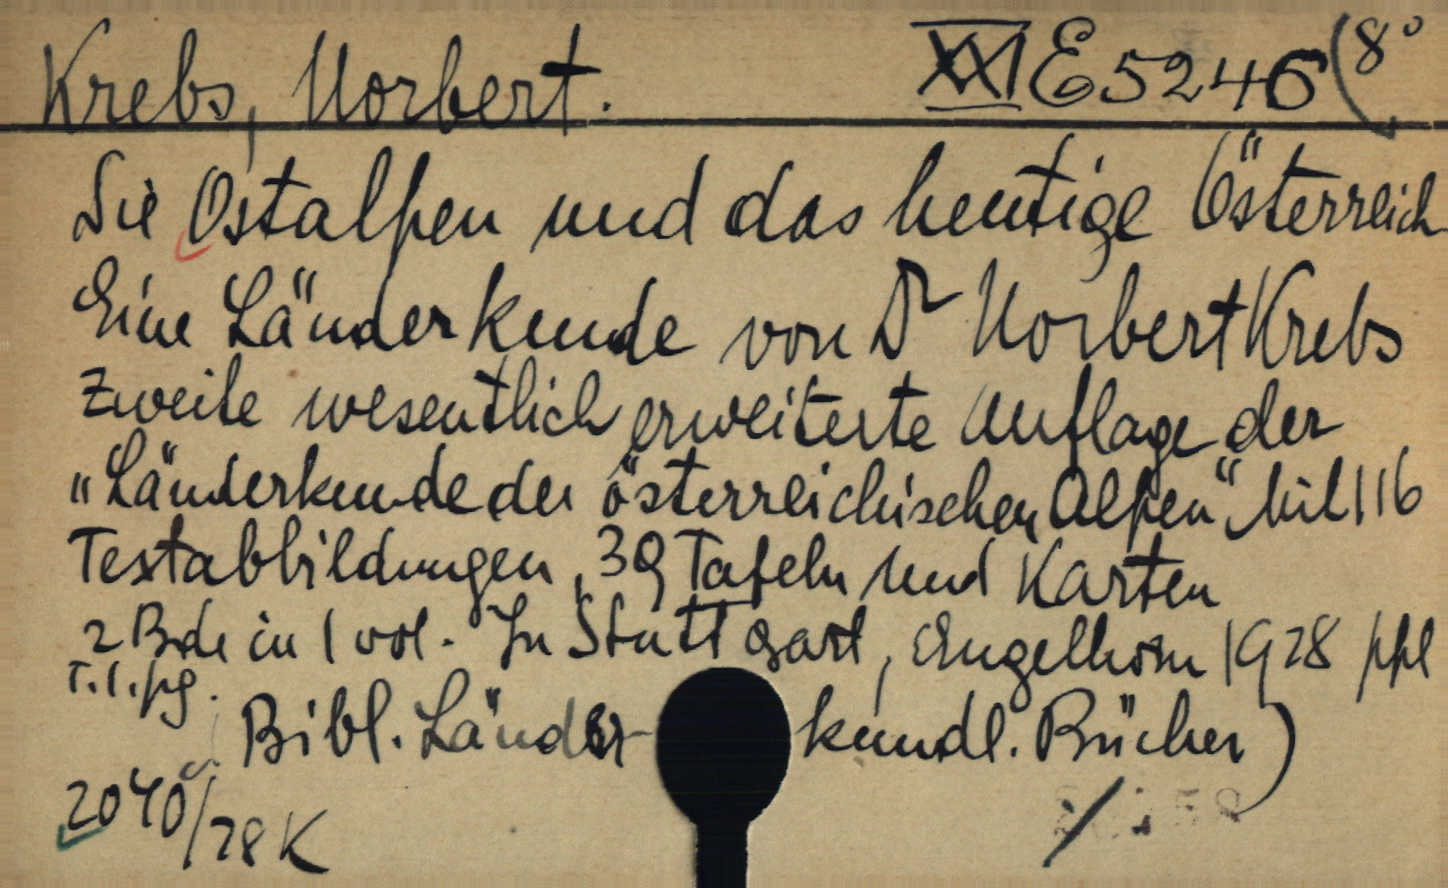 Krebs, Norbert. XXI E 5246 (8°
Die Ostalpen und das heutige Österreich
Eine Länderkunde von Dr Norbert Krebs
Zweite wesentlich erweiterte Auflage der
„Länderkunde der österreichischen Alpen“ Mit 116
Textabbildungen, 39 Tafeln und Karten
2 Bde in 1 vol. In Stuttgart, Engelhorn 1928 ppl
T.l.pg.
Bibl. Länder- kundl. Bücher)
2040/28 K